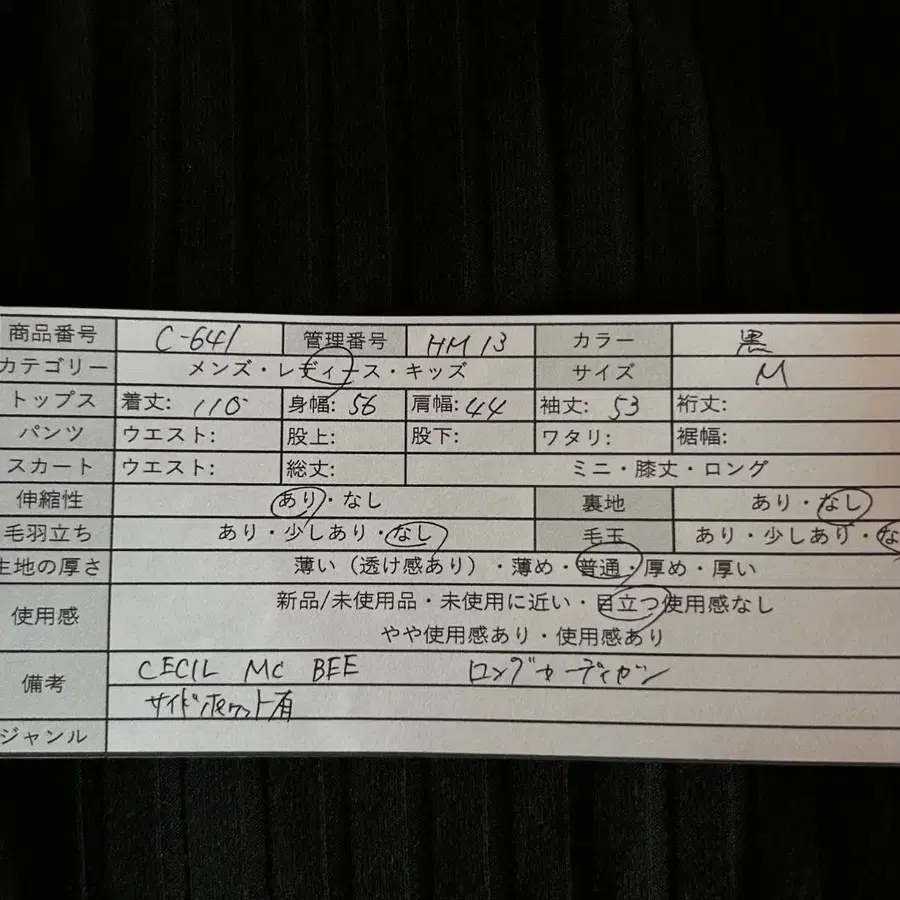 商品番号 C-641 管理番号 HM13 カラー 黒
カテゴリー メンズ・レディース・キッズ サイズ M
トップス 着丈: 110 身幅: 56 肩幅: 44 袖丈: 53 裄丈:
パンツ ウエスト: 股上: 股下: ワタリ: 裾幅:
スカート ウエスト: 総丈: ミニ・膝丈・ロング
伸縮性 あり・なし 裏地 あり・なし
毛羽立ち あり・少しあり・なし 毛玉 あり・少しあり・な
生地の厚さ 薄い（透け感あり）・薄め・普通・厚め・厚い
使用感 新品/未使用品・未使用に近い・目立つ使用感なし
やや使用感あり・使用感あり
備考 CECIL MC BEE ロングカーディガン
サイドポケット有
ジャンル